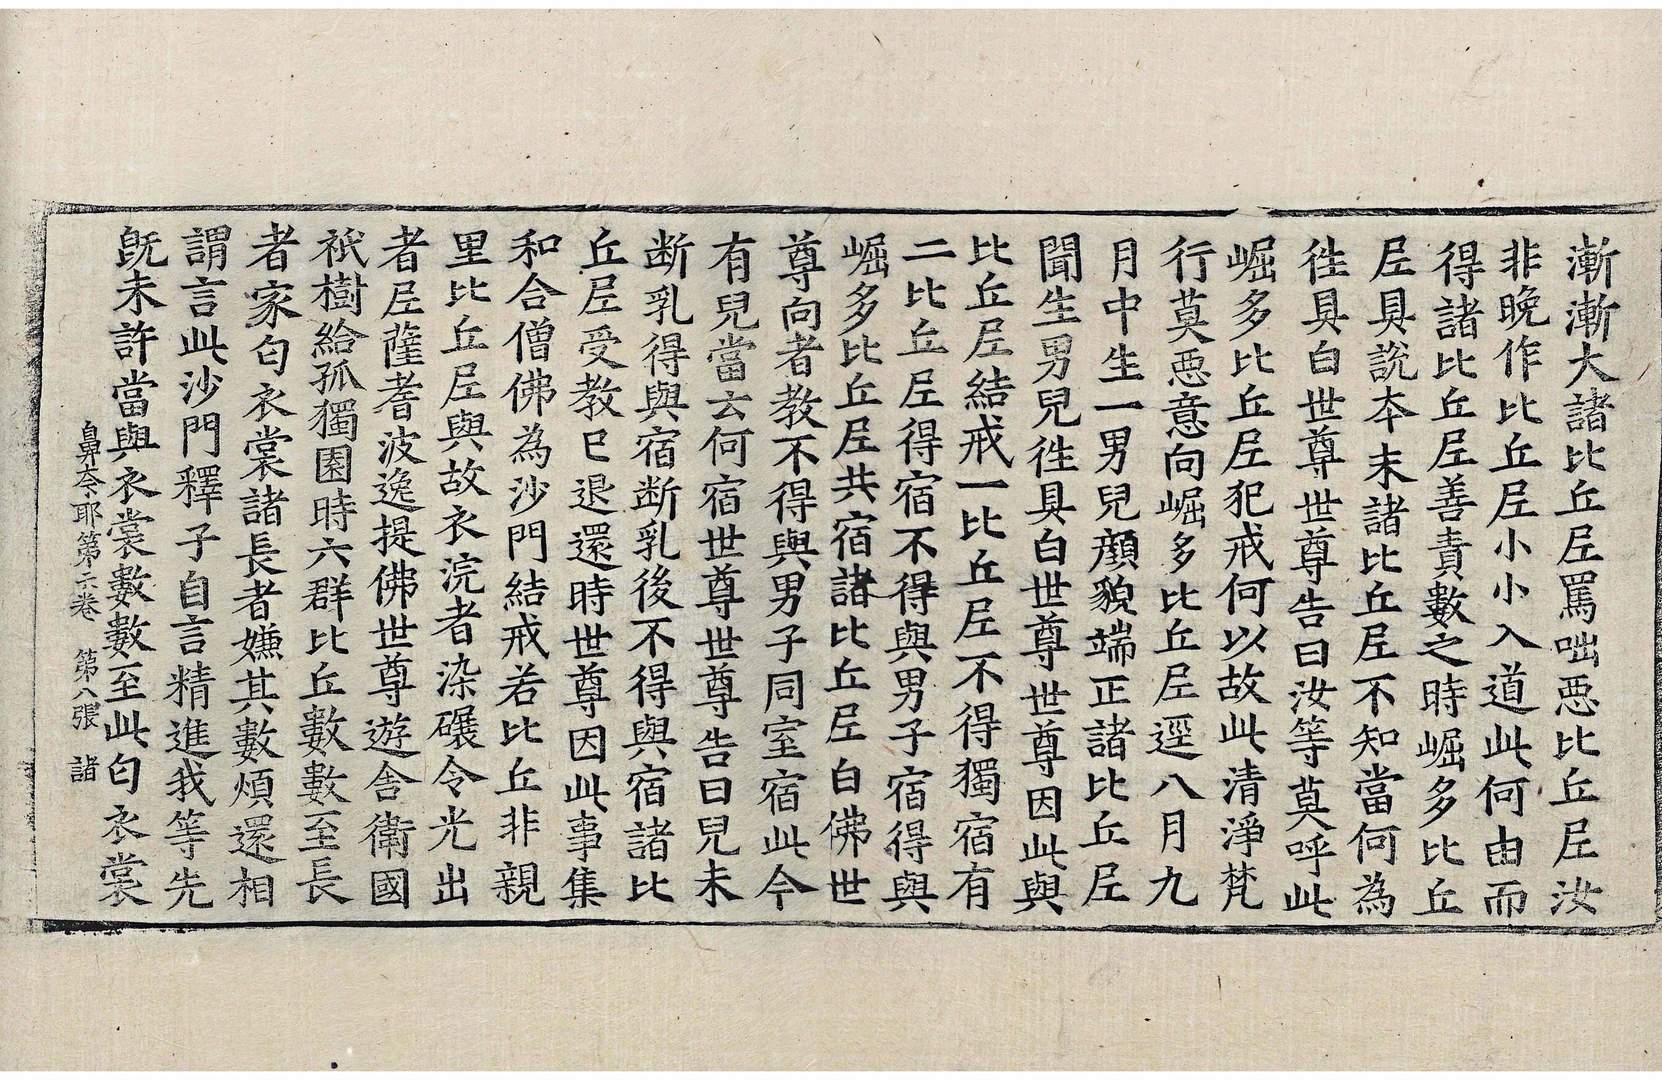 漸漸大諸比丘尼罵咄惡比丘尼汝
非晚作比丘尼小小入道此何由而
得諸比丘尼善責數之時崛多比丘
尼具說夲末諸比丘尼不知當何為
徃具白世尊世尊告曰汝等莫呼此
崛多比丘尼犯戒何以故此清淨梵
行莫惡意向崛多比丘尼逕八月九
月中生一男兒顏貌端正諸比丘尼
聞生男兒徃具白世尊世尊因此與
比丘尼結戒一比丘尼不得獨宿有
二比丘尼得宿不得與男子宿得與
崛多比丘尼共宿諸比丘尼白佛世
尊向者教不得與男子同室宿此今
有兒當云何宿世尊世尊告曰兒未
断乳得與宿断乳後不得與宿諸比
丘尼受教已退還時世尊因此事集
和合僧佛為沙門結戒若比丘非親
里比丘尼與故衣浣者染碾令光出
者尼薩耆波逸提佛世尊遊舍衛國
祇樹給孤獨園時六群比丘數數至長
者家匂衣裳諸長者嫌其數煩還相
謂言此沙門釋子自言精進我等先
旣未許當與衣裳數數至此匂衣裳
鼻奈耶第六卷 第八張 諸